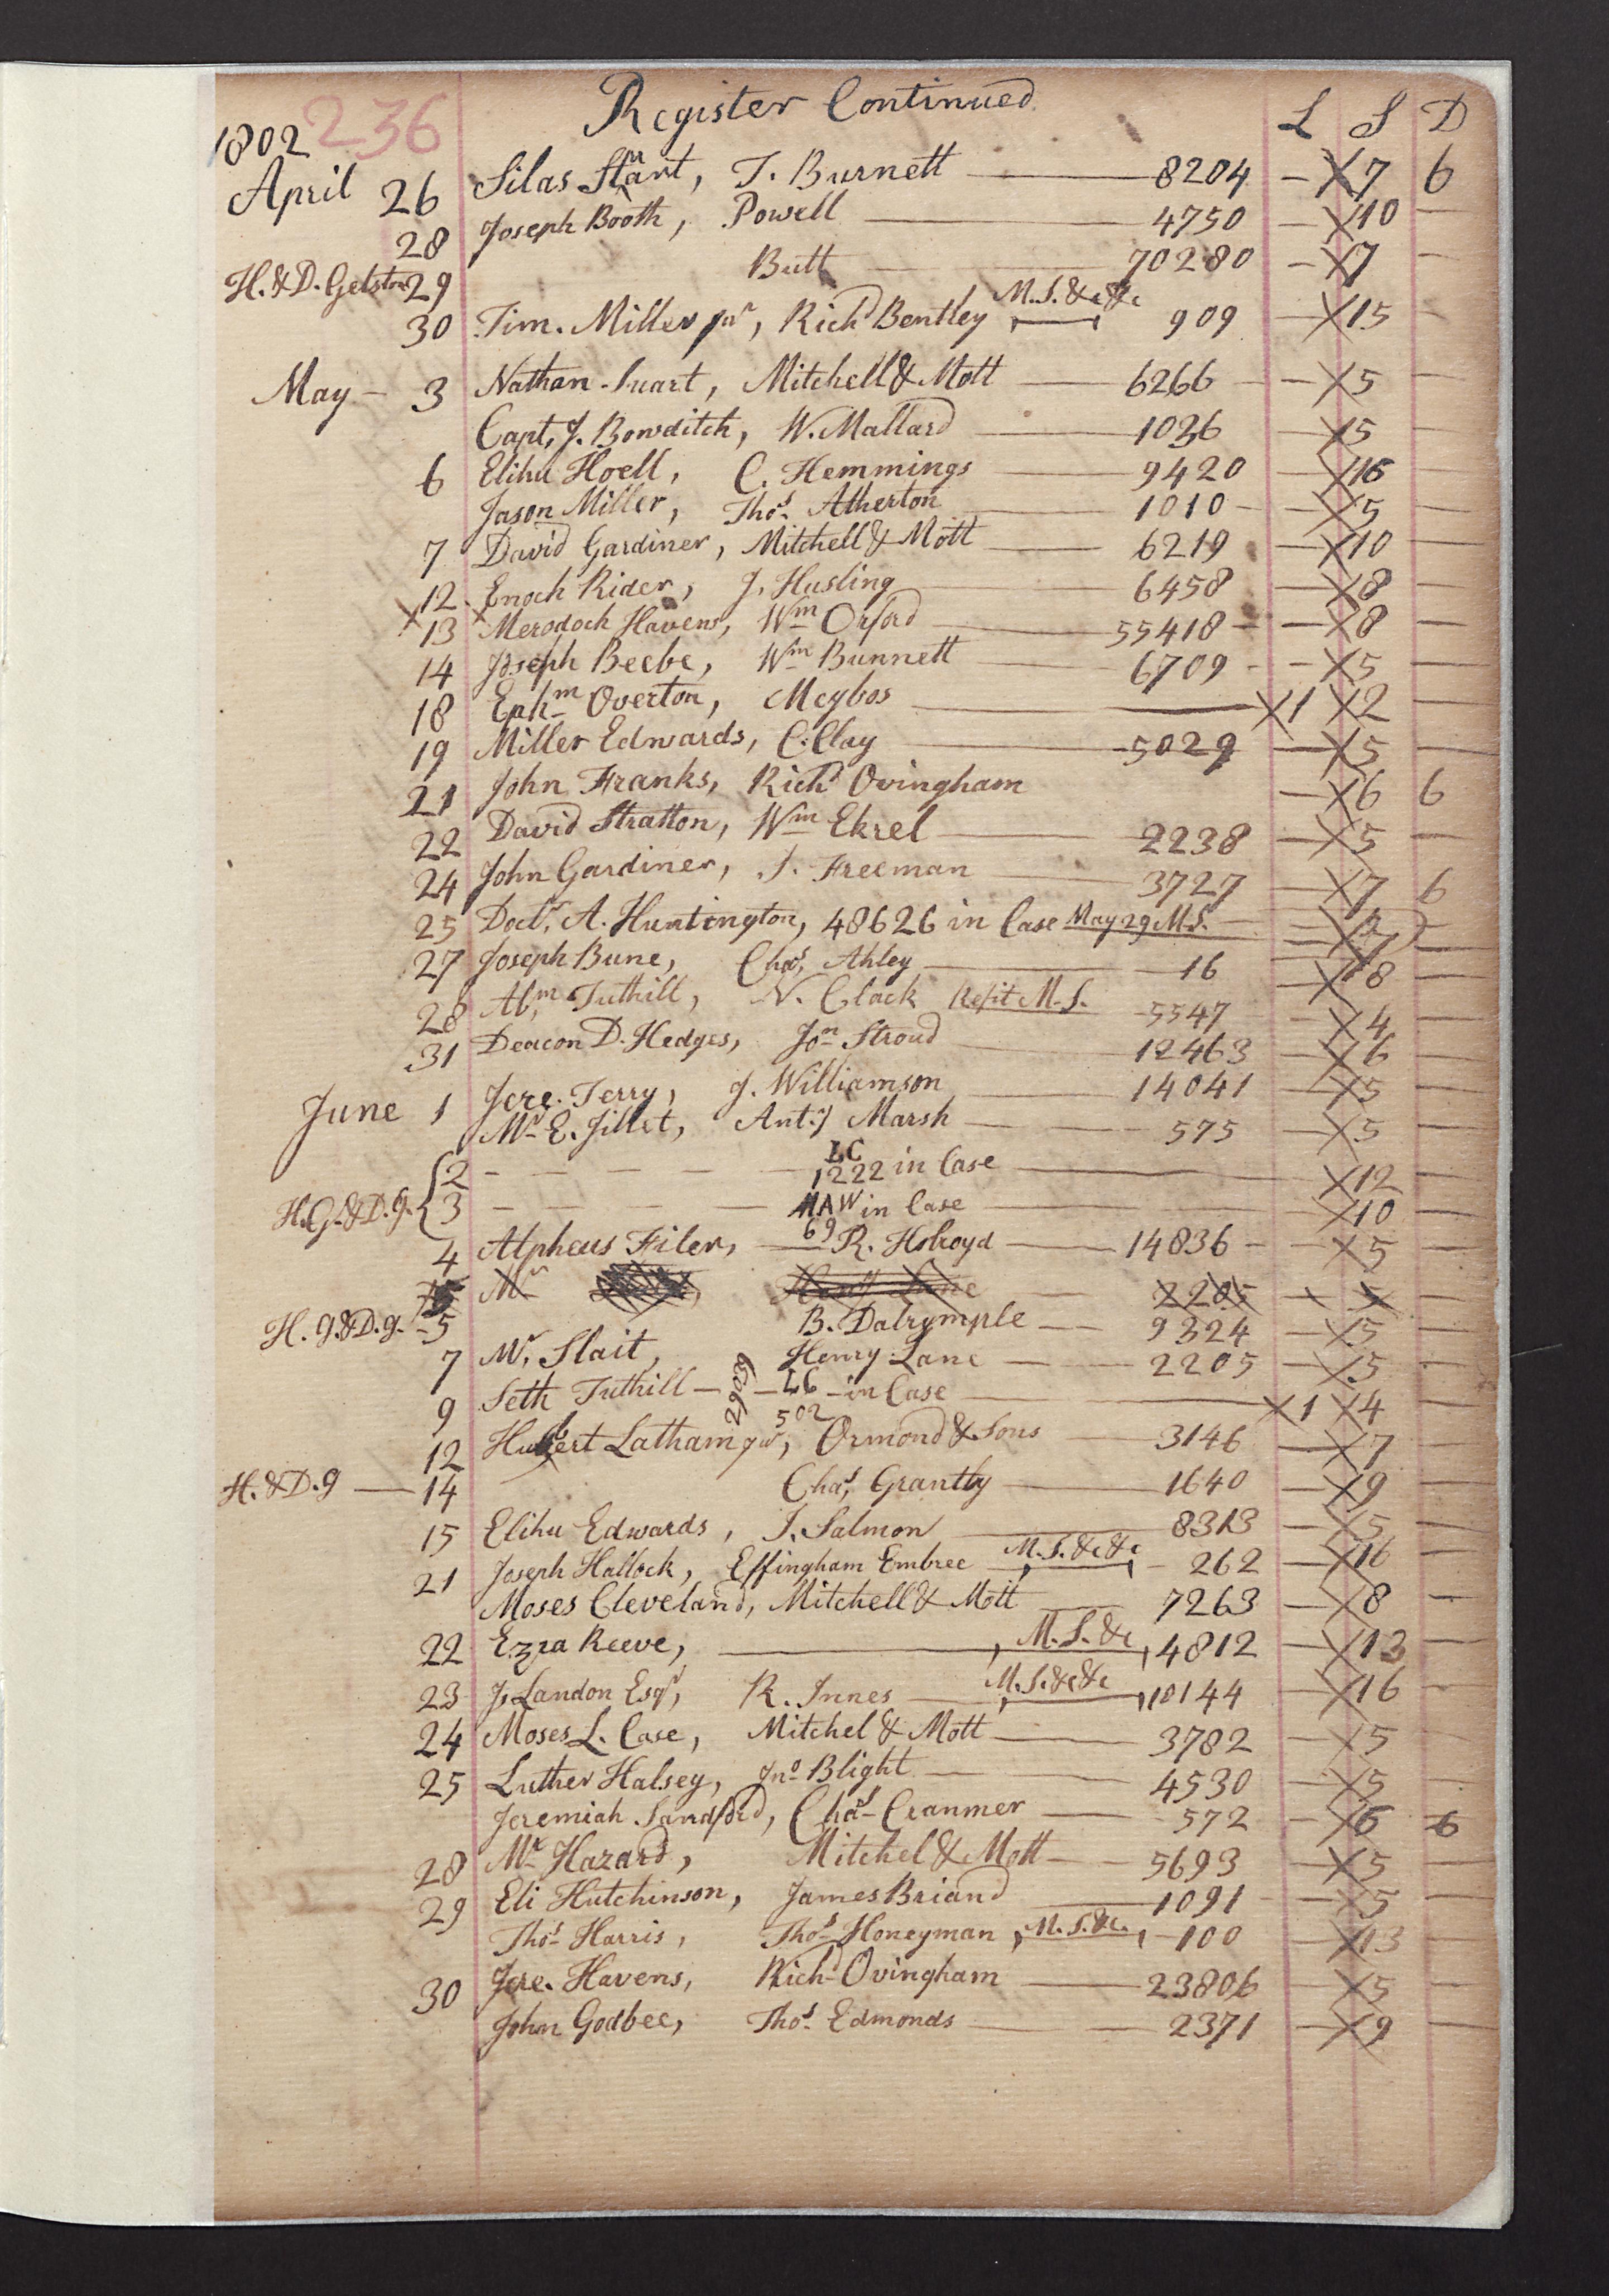 236
Register Continued
1802 L S D
April 26 Silas Stuart, T. Burnett — 8204 — X 7 6
28 Joseph Booth, Powell — 4750 — X 10 —
H. & D. Gelston 29 Butt — 70280 — X 7 —
30 Tim. Miller jur, Richd Bentley M.S. &c &c 909 — X 15 —
May — 3 Nathan Suart, Mitchell & Mott — 6266 — X 5 —
Capt, J. Bowditch, W. Mallard — 1036 — X 5 —
6 Elihu Hoell, C. Hemmings — 9420 — X 16 —
Jason Miller, Thos Atherton — 1010 — X 5 —
7 David Gardiner, Mitchell & Mott — 6219 — X 10 —
12 Enoch Rider, J. Husling — 6458 — X 8 —
X 13 X Merodock Havens, Wm Orford — 55418 — X 8 —
14 Joseph Beebe, Wm Bunnett — 6709 — X 5 —
18 Ephm Overton, Meybos — X 1 X 2 —
19 Miller Edwards, C. Clay — 5029 — X 5 —
21 John Franks, Richd Ovingham — X 6 6
22 David Stratton, Wm Ekrel — 2238 — X 5 —
24 John Gardiner, J. Freeman — 3727 — X 7 6
25 Doctr, A. Huntington, 48626 in Case May 29 M.S. — X 7 —
27 Joseph Bune, Chas, Ahley — 16 — X 8 —
28 Abm, Tuthill, N. Clack Refit M.S. 5547 — X 4 —
31 Deacon D. Hedges, Jon Stroud — 12463 — X 6 —
June 1 Jere. Terry, J. Williamson — 14041 — X 5 —
Mr E. Jillet, Anty Marsh — 575 — X 5 —
2 — LC 1222 in Case — X 12 —
H.G. & D.g. 3 — MAW 69 in Case — X 10 —
4 Alpheus Filer, — R. Holroyd — 14836 — X 5 —
5 Mr 2205 X
H. g. & D. g. — 5 B. Dalrymple — 9324 — X 5 —
7 Mr. Slait, Henry Lane — 2205 — X 5 —
9 Seth Tuthill — 29039 — LC 502 — in Case — X 1 X 4 —
12 Hubert Latham jur, Ormond & Sons — 3146 — X 7 —
H. & D. g — 14 Chas, Grantly — 1640 — X 9 —
15 Elihu Edwards, J. Salmon — 8313 — X 5 —
21 Joseph Hallock, Effingham Embree M.S. &c &c — 262 — X 16 —
Moses Cleveland, Mitchell & Mott — 7263 — X 8 —
22 Ezra Reeve, — M.S. &c, 4812 — X 13 —
23 J. Landon Esqr, R. Innes — M.S. &c &c 10144 — X 16 —
24 Moses L. Case, Mitchel & Mott — 3782 — X 5 —
25 Luther Halsey, Jno Blight — 4530 — X 5 —
Jeremiah Sandford, Chas Cranmer — 572 — X 6 6
28 Mr Hazard, Mitchel & Mott — 5693 — X 5 —
29 Eli Hutchinson, James Briand — 1091 — X 5 —
Thos Harris, Thos Honeyman, M.S. &c. — 100 — X 13 —
30 Jere. Havens, Richd Ovingham — 23806 — X 5 —
John Godbee, Thos Edmonds — 2371 — X 9 —